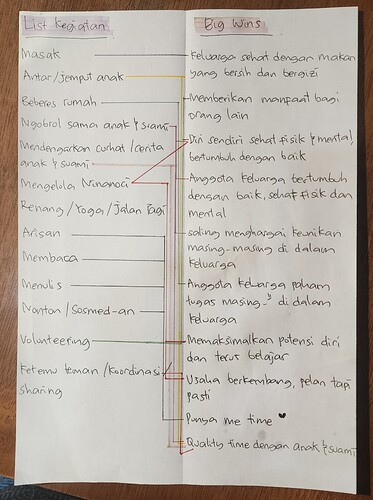 List kegiatan
Masak
Antar/jemput anak
Beberes rumah
Ngobrol sama anak & suami
Mendengarkan curhat/cerita
anak & suami
Mengelola Ninanoci
Renang/Yoga/Jalan Pagi
Arisan
Membaca
Menulis
Nonton/Sosmed-an
Volunteering
Ketemu teman/koordinasi
sharing
Big Wins
Keluarga sehat dengan makan
yang bersih dan bergizi
Memberikan manfaat bagi
orang lain
Diri sendiri sehat fisik & mental,
bertumbuh dengan baik
Anggota keluarga bertumbuh
dengan baik, sehat fisik dan
mental
saling menghargai keunikan
masing-masing di dalam
keluarga
Anggota keluarga paham
tugas masing-² di dalam
keluarga
Memaksimalkan potensi diri
dan terus belajar
Usaha berkembang, pelan tapi
pasti
Punya me time
Quality time dengan anak & suami